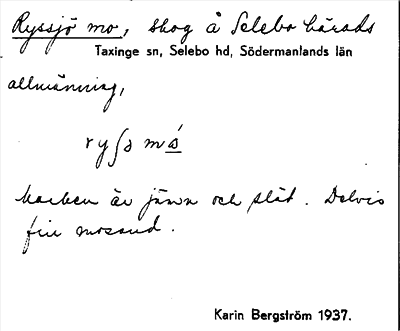 Ryssjö mo, skog å Selebo härads
Taxinge sn, Selebo hd, Södermanlands län
allmänning,
marken är jämn och slät. Delvis
fin mosand.
Karin Bergström 1937.